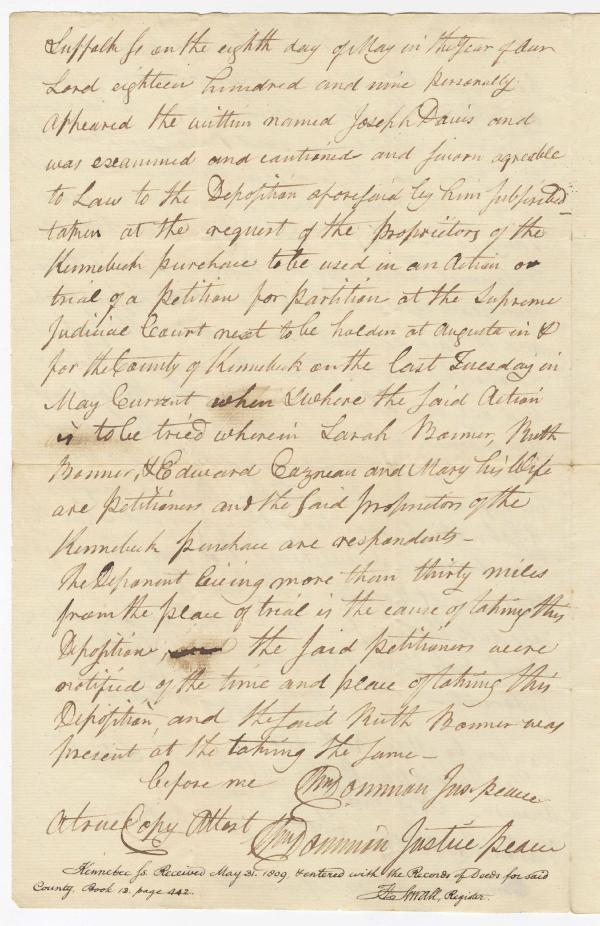 Suffolk Ss on the eighth day of May in the Year of Our
Lord eighteen hundred and nine personally
appeared the within named Joseph Davis and
was examined and cautioned and sworn agreable
to Law to the Deposition aforesaid by him subscribed
taken at the request of the proprietors of the
Kennebeck purchase to be used in an Action or
trial of a petition for partition at the Supreme
Judicial Court next to be holden at Augusta in &
for the County of Kennebeck on the last Tuesday in
May Current when & where the said Action
is to be tried wherein Sarah Bonner, Ruth
Bonner, & Edward Cazneau and Mary his Wife
are petitioners and the said proprietors of the
Kennebeck purchase are respondents—
The Deponent living more than thirty miles
from the place of trial is the cause of taking this
Deposition, the said petitioners were
notified of the time and place of taking this
Deposition, and the said Ruth Bonner was
present at the taking the same—
before me Wm Donnison Jus. peace
A true Copy Attest Wm Donnison Justice peace
Kennebec Ss. Received May 31. 1809. & entered with the Records of Deeds for said
County, Book 13. page 442.
Small, Register.